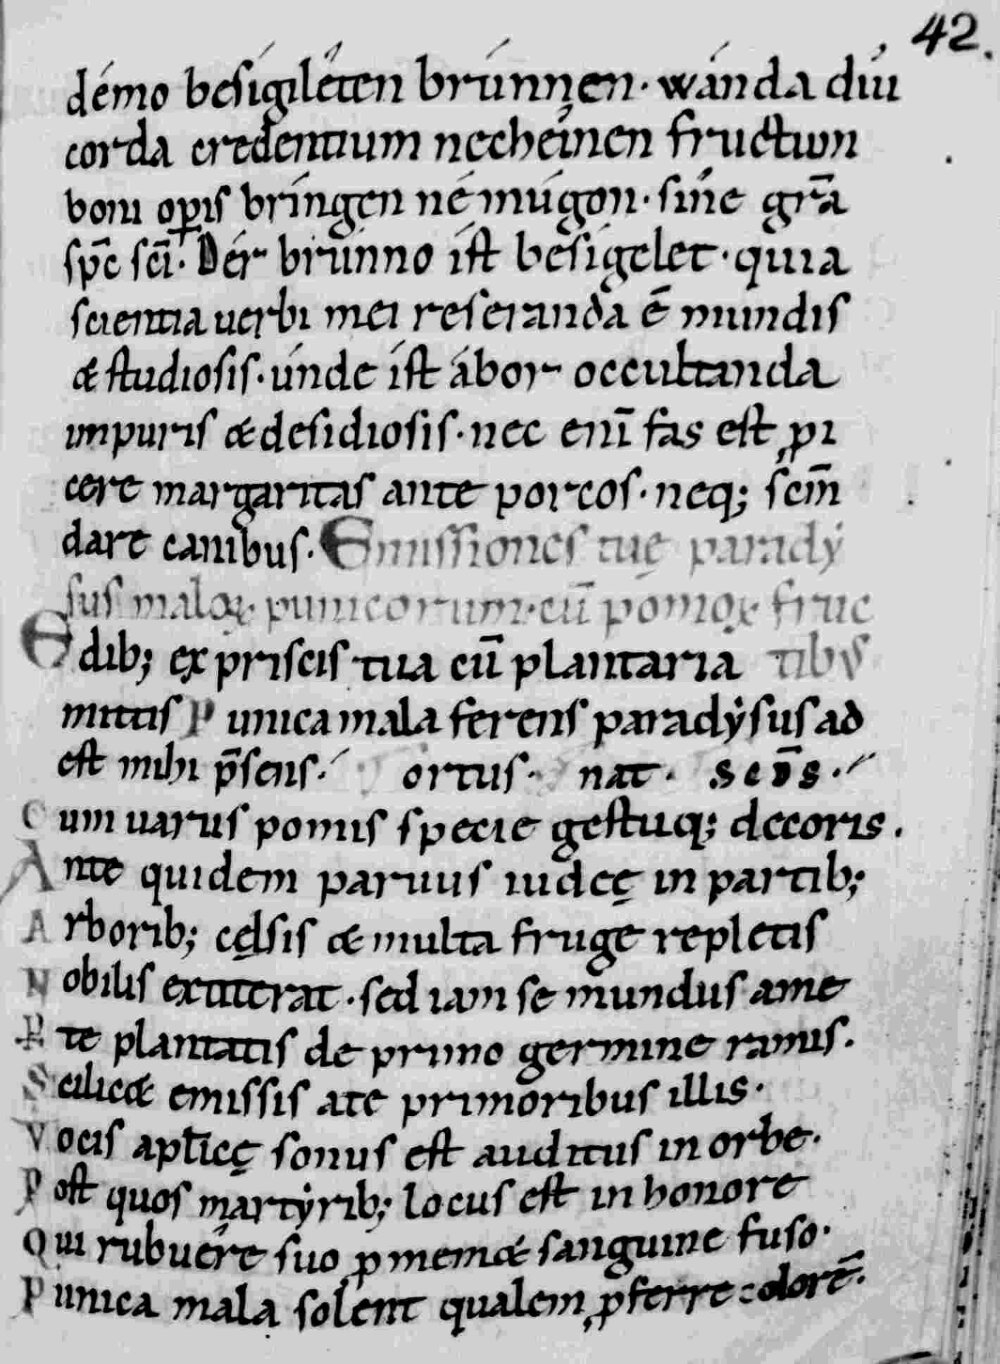 42.
démo besígiléten brúnnen· wánda diú
corda credentium necheínen fructum
boni op̲is bríngen né múgon· síne gr̄a
sp̄c sc̄i· Dér brúnno íst besígelet· quia
scientia uerbi mei reseranda ē mundis
& studiosis· únde íst ábor occultanda
impuris & desidiosis· nec enī fas est ꝓi
cere margaritas ante porcos· neq; scm̄
dare canibus· Emissiones tuę parady
sus maloꝝ punicorum· cū pomoꝝ fruc
Edib; ex priscis tua cū plantaria tibꝰ
mittis Punica mala ferens paradẏsus ad
est mihi p̄sens· ortus· nat·
Cum uarus pomis specie gestuq; decoris.
Ante quidem paruus iudeę in partib;
Arborib; celsis & multa fruge repletis
Nobilis extiterat· sed iam se mundus ame
P te plantatis de primo germine ramis.
Scilic& emissis a te primoribus illis·
Vocis aptīcę sonus est auditus in orbe·
Post quos martẏrib; locus est in honore
Qui rubuére suo ꝑ mem& sanguine fuso·
Punica mala solent qualem ꝓferre colorē·